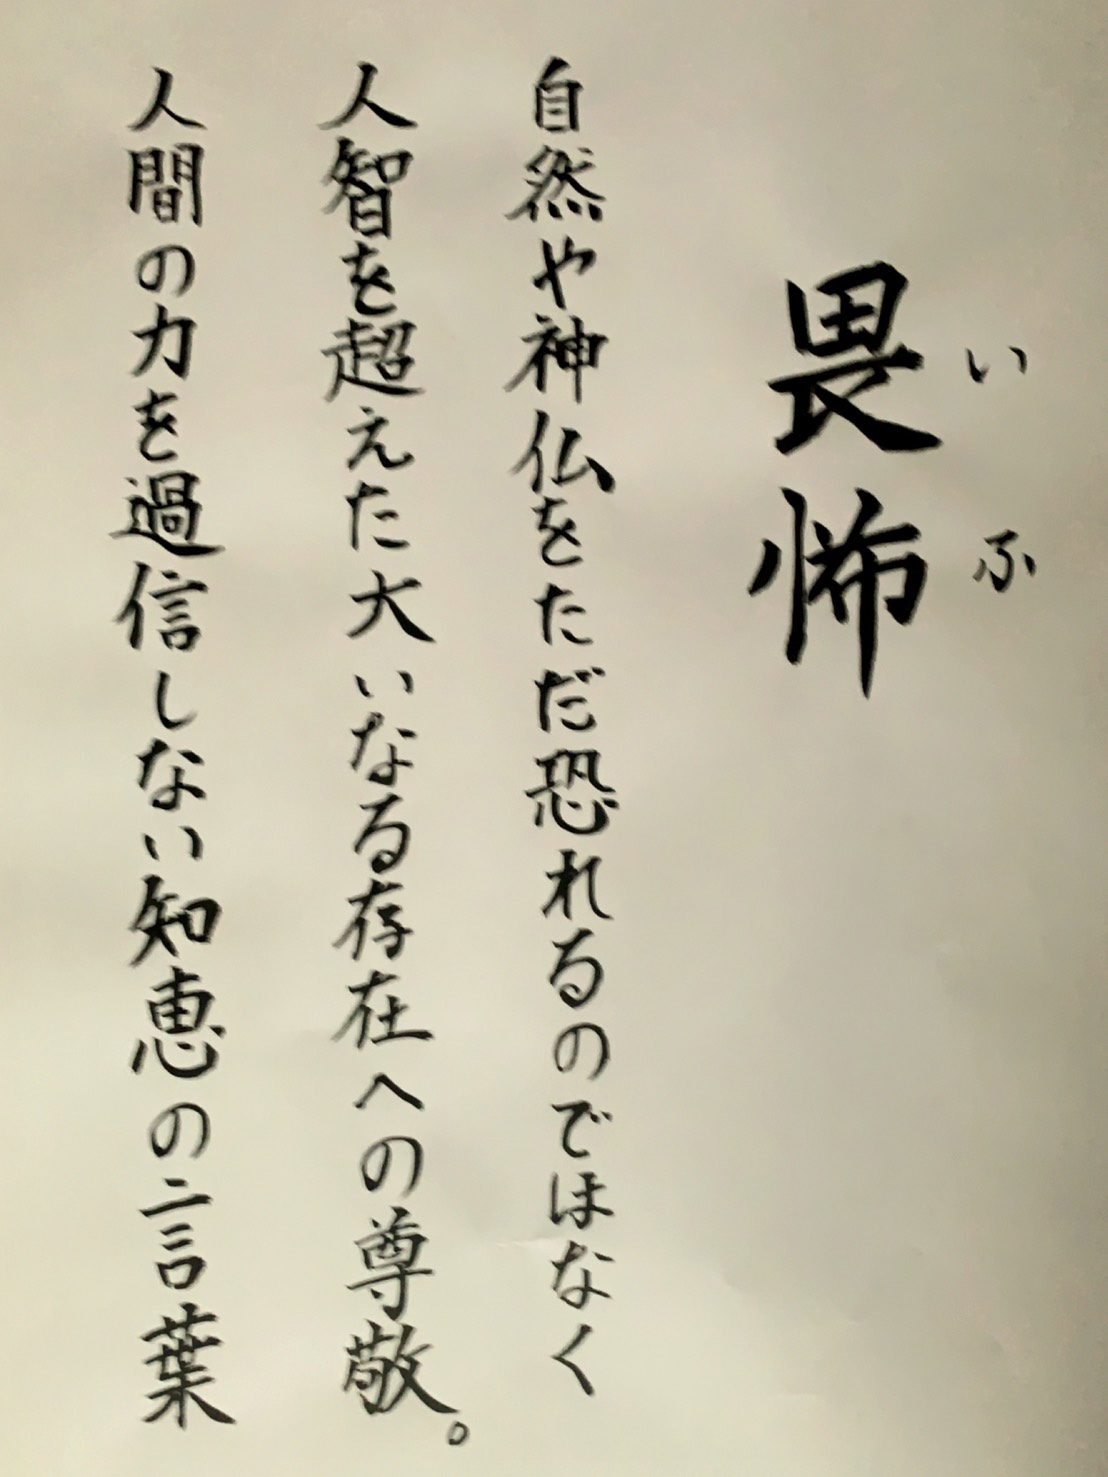 いふ
畏怖
自然や神仏をただ恐れるのではなく
人智を超えた大いなる存在への尊敬。
人間の力を過信しない知恵の言葉